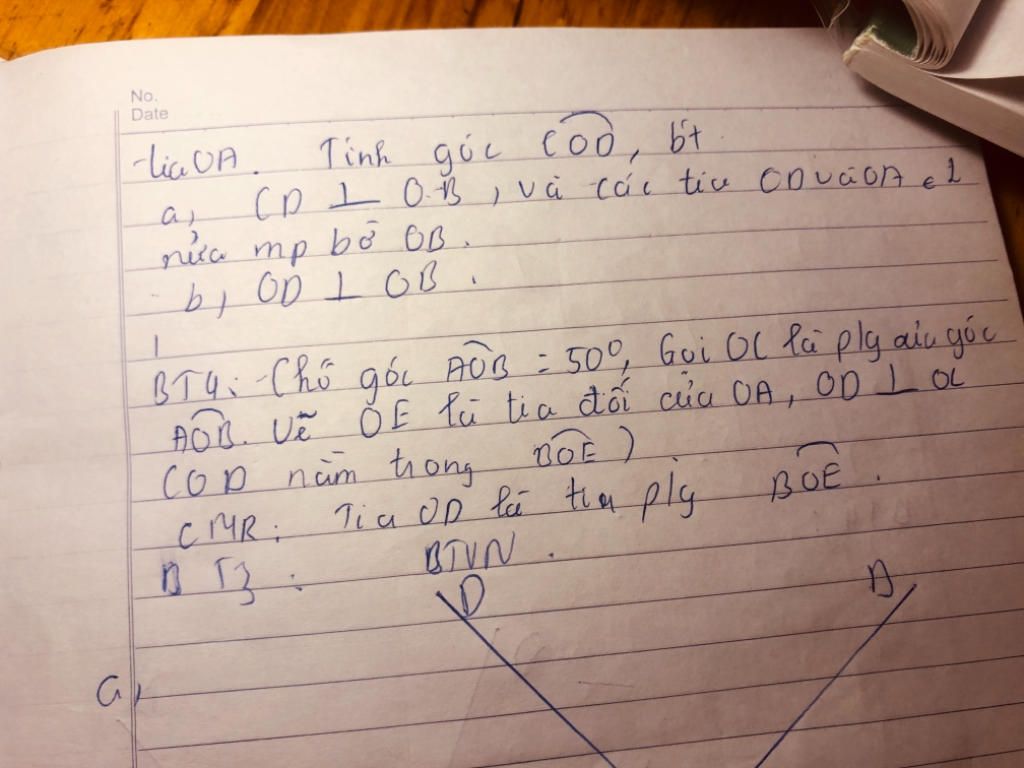 No.
Date
tia OA. Tính góc COD, bt
a, CD ⊥ O.B, và các tia OD và OA ∈ 1
nửa mp bờ OB.
b, OD ⊥ OB.
BT4: Chô góc AOB = 50⁰, Gọi OC là p/g của góc
AOB. Vẽ OE là tia đối của OA, OD ⊥ OC
(OD nằm trong BOE)
CMR: Tia OD là tia p/g BOE.
BTVN.
BT3:
D
A
a,